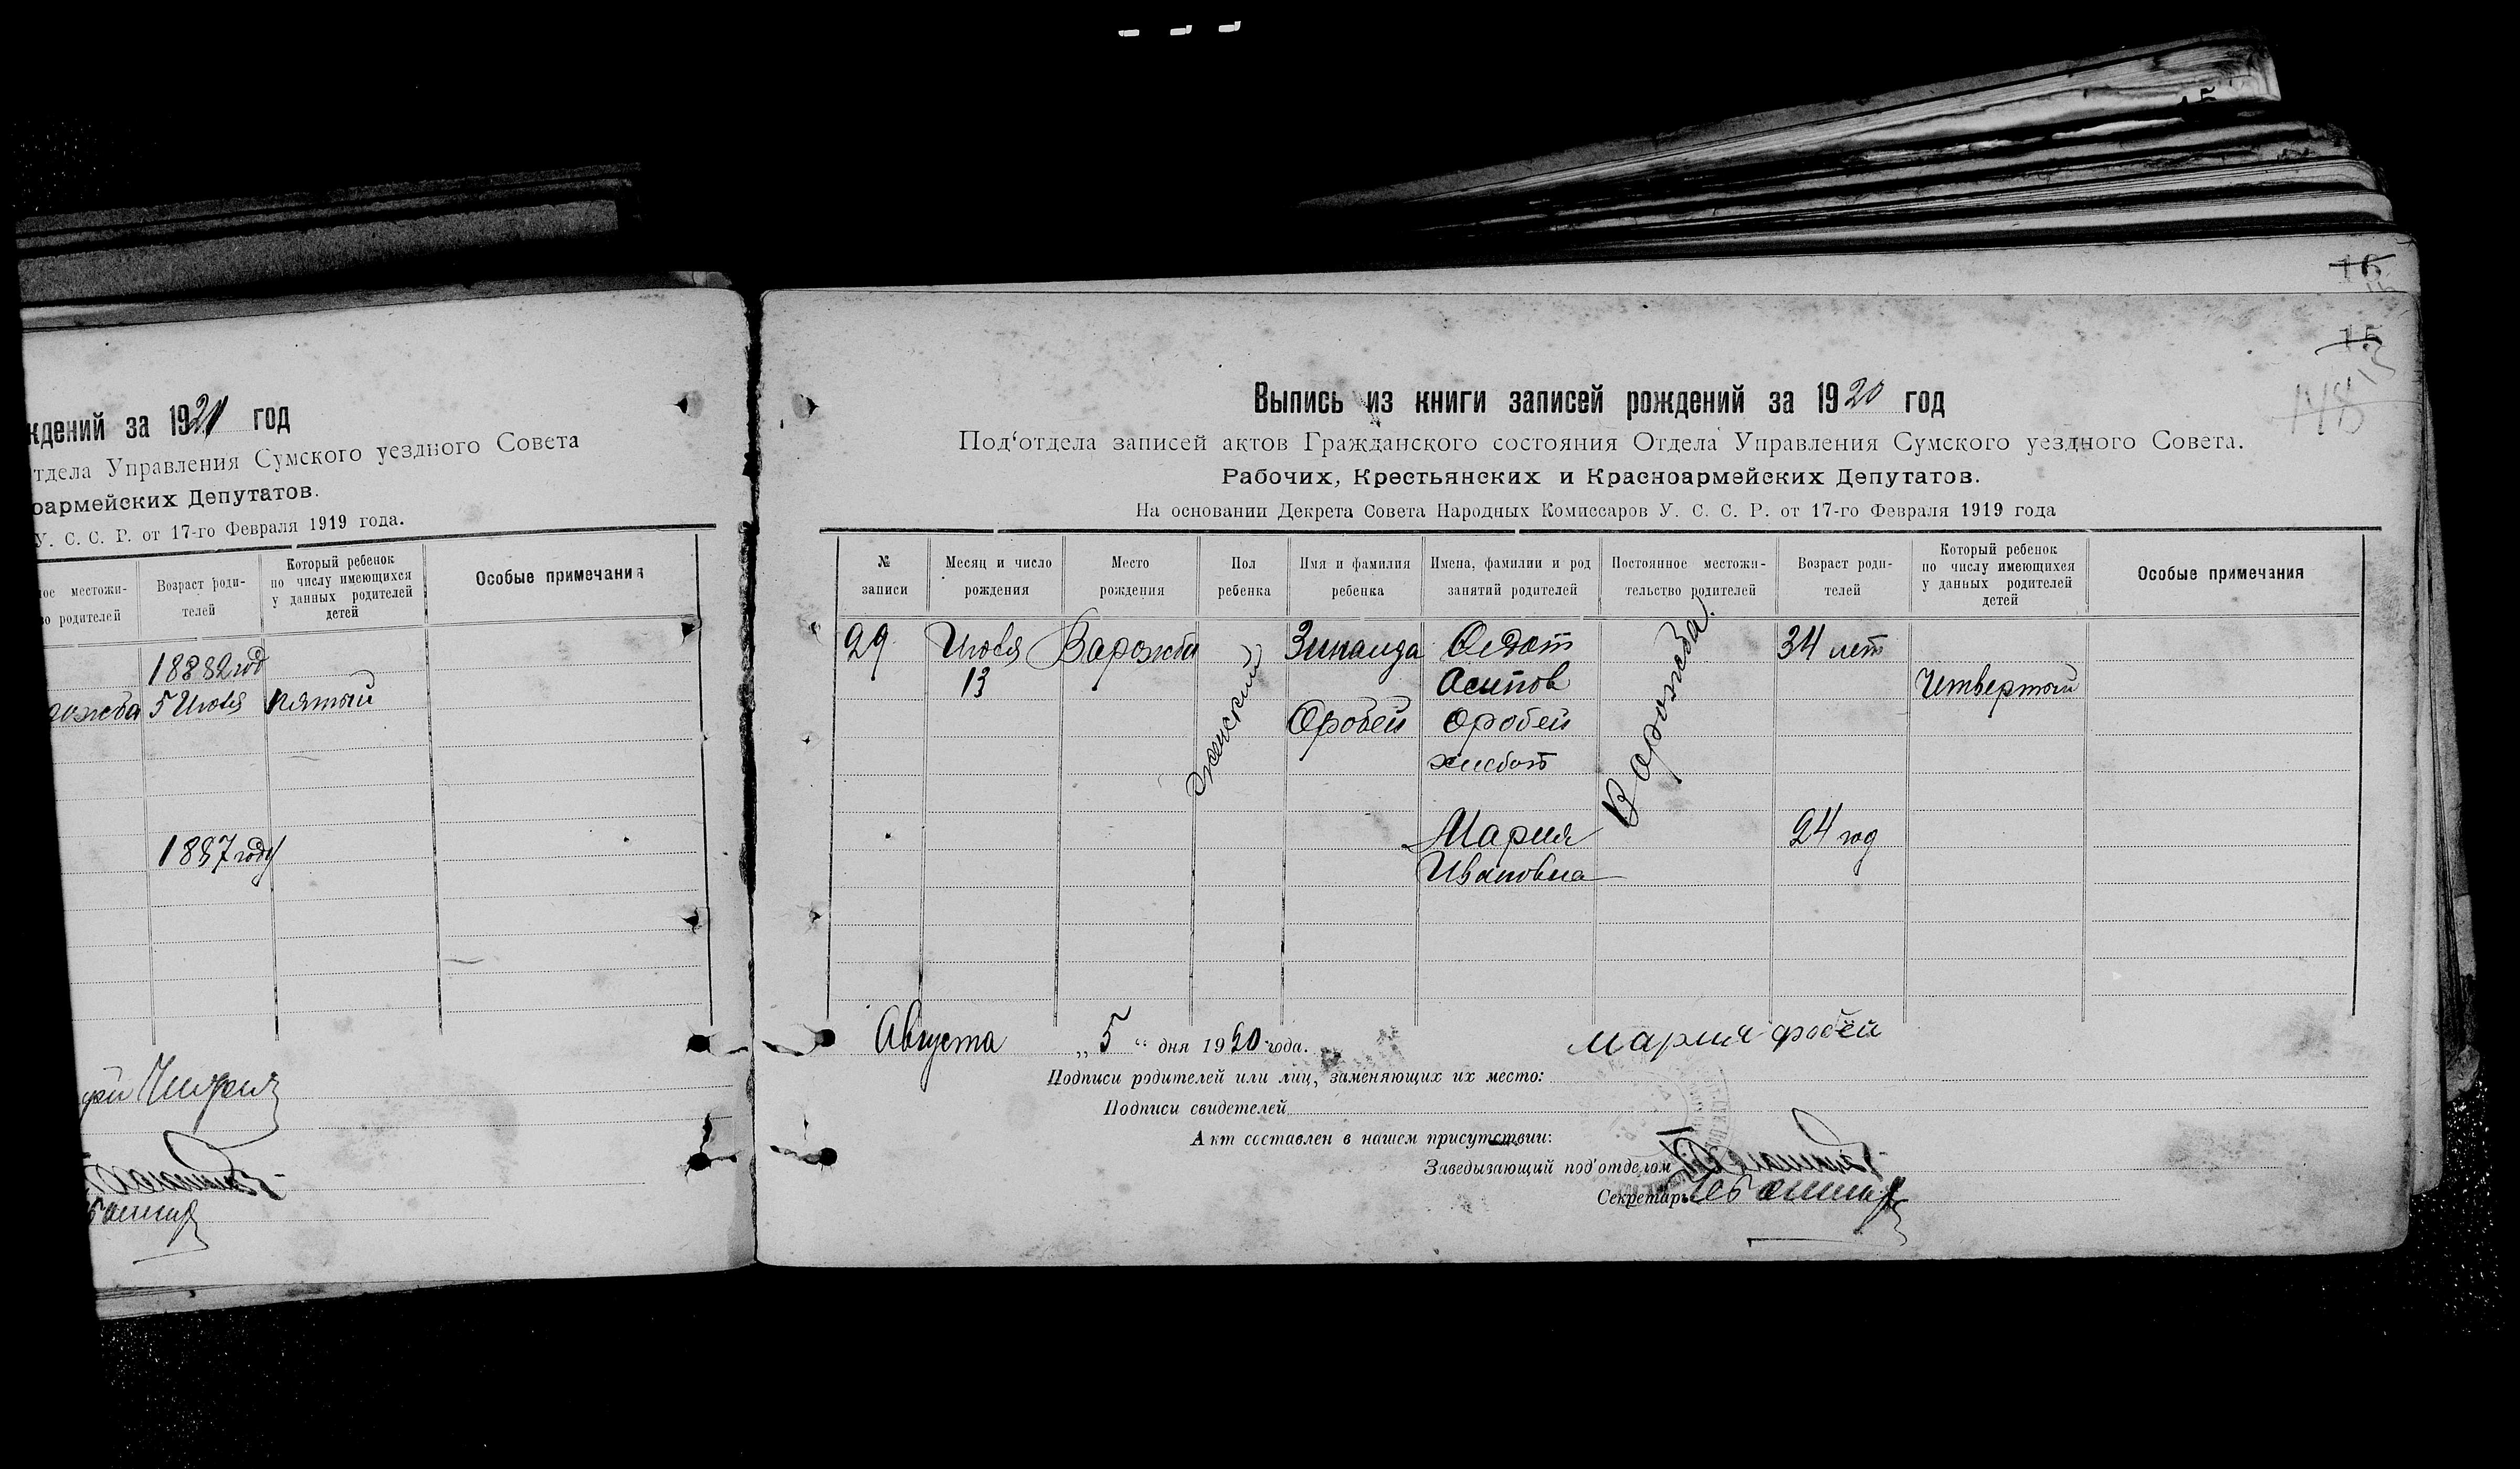 15
16
15
148
ждений за 1921 год
тдела Управления Сумского уездного Совета
оармейских Депутатов.
У. С. С. Р. от 17-го Февраля 1919 года.
ное местожи-
во родителей
Возраст роди-
телей
Который ребенок
по числу имеющихся
у данных родителей
детей
Особые примечания
год
5 Июля
пятый
ожба
1887 году
Выпись из книги записей рождений за 1920 год
Под‘отдела записей актов Гражданского состояния Отдела Управления Сумского уездного Совета.
Рабочих, Крестьянских и Красноармейских Депутатов.
На основании Декрета Совета Народных Комиссаров У. С. С. Р. от 17-го Февраля 1919 года
№
записи
Месяц и число
рождения
Место
рождения
Пол
ребенка
Имя и фамилия
ребенка
Имена, фамилии и род
занятий родителей
Постоянное местожи-
тельство родителей
Возраст роди-
телей
Который ребенок
по числу имеющихся
у данных родителей
детей
Особые примечания
29
Июля
13
Варожба
женский
Зинаида
Фробей
Федот
Асипов
Фробей
хлебоп
Мария
Ивановна
Ворожба.
34 лет
24 год
Четвертый
Августа „5“ дня 1920 года.
Мария Фробей
Подписи родителей или лиц, заменяющих их место:
Подписи свидетелей
Акт составлен в нашем присутствии:
Заведывающий под‘отделом
Секретарь